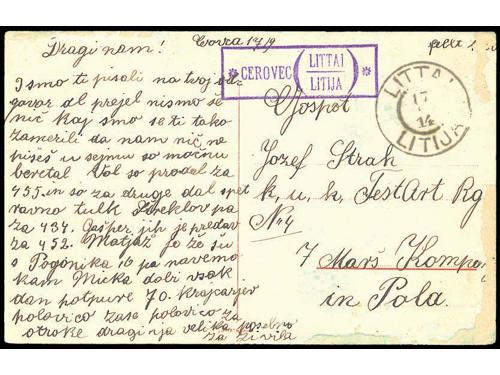 Dragi nam!
Cerovec 17/9
Ismo ti pisali na tvoj od
govor al prejel nismo še
nič kaj smo se ti tako
zamerili da nam nič ne
pišeš u sejmu so močnu
beretal Vol so prodal za
455. in so za druge dal spet
ravno tulk Streklov pa
za 434. Gašper jih je predav
za 452. Matjaž je že šu
s Pogonika pa navemo
kam Micka dobi vsak
dan potpure 70. krajcarjev
polovico zase polovico za
otroke draginja velika posebno
za živila
* CEROVEC (LITTAI LITIJA) *
LITTAI
17
14
LITIJA
Gospot
Jozef Strah
k. u. k. FestArt. Rg
No 4
7 Marš Kompa
in Pola.